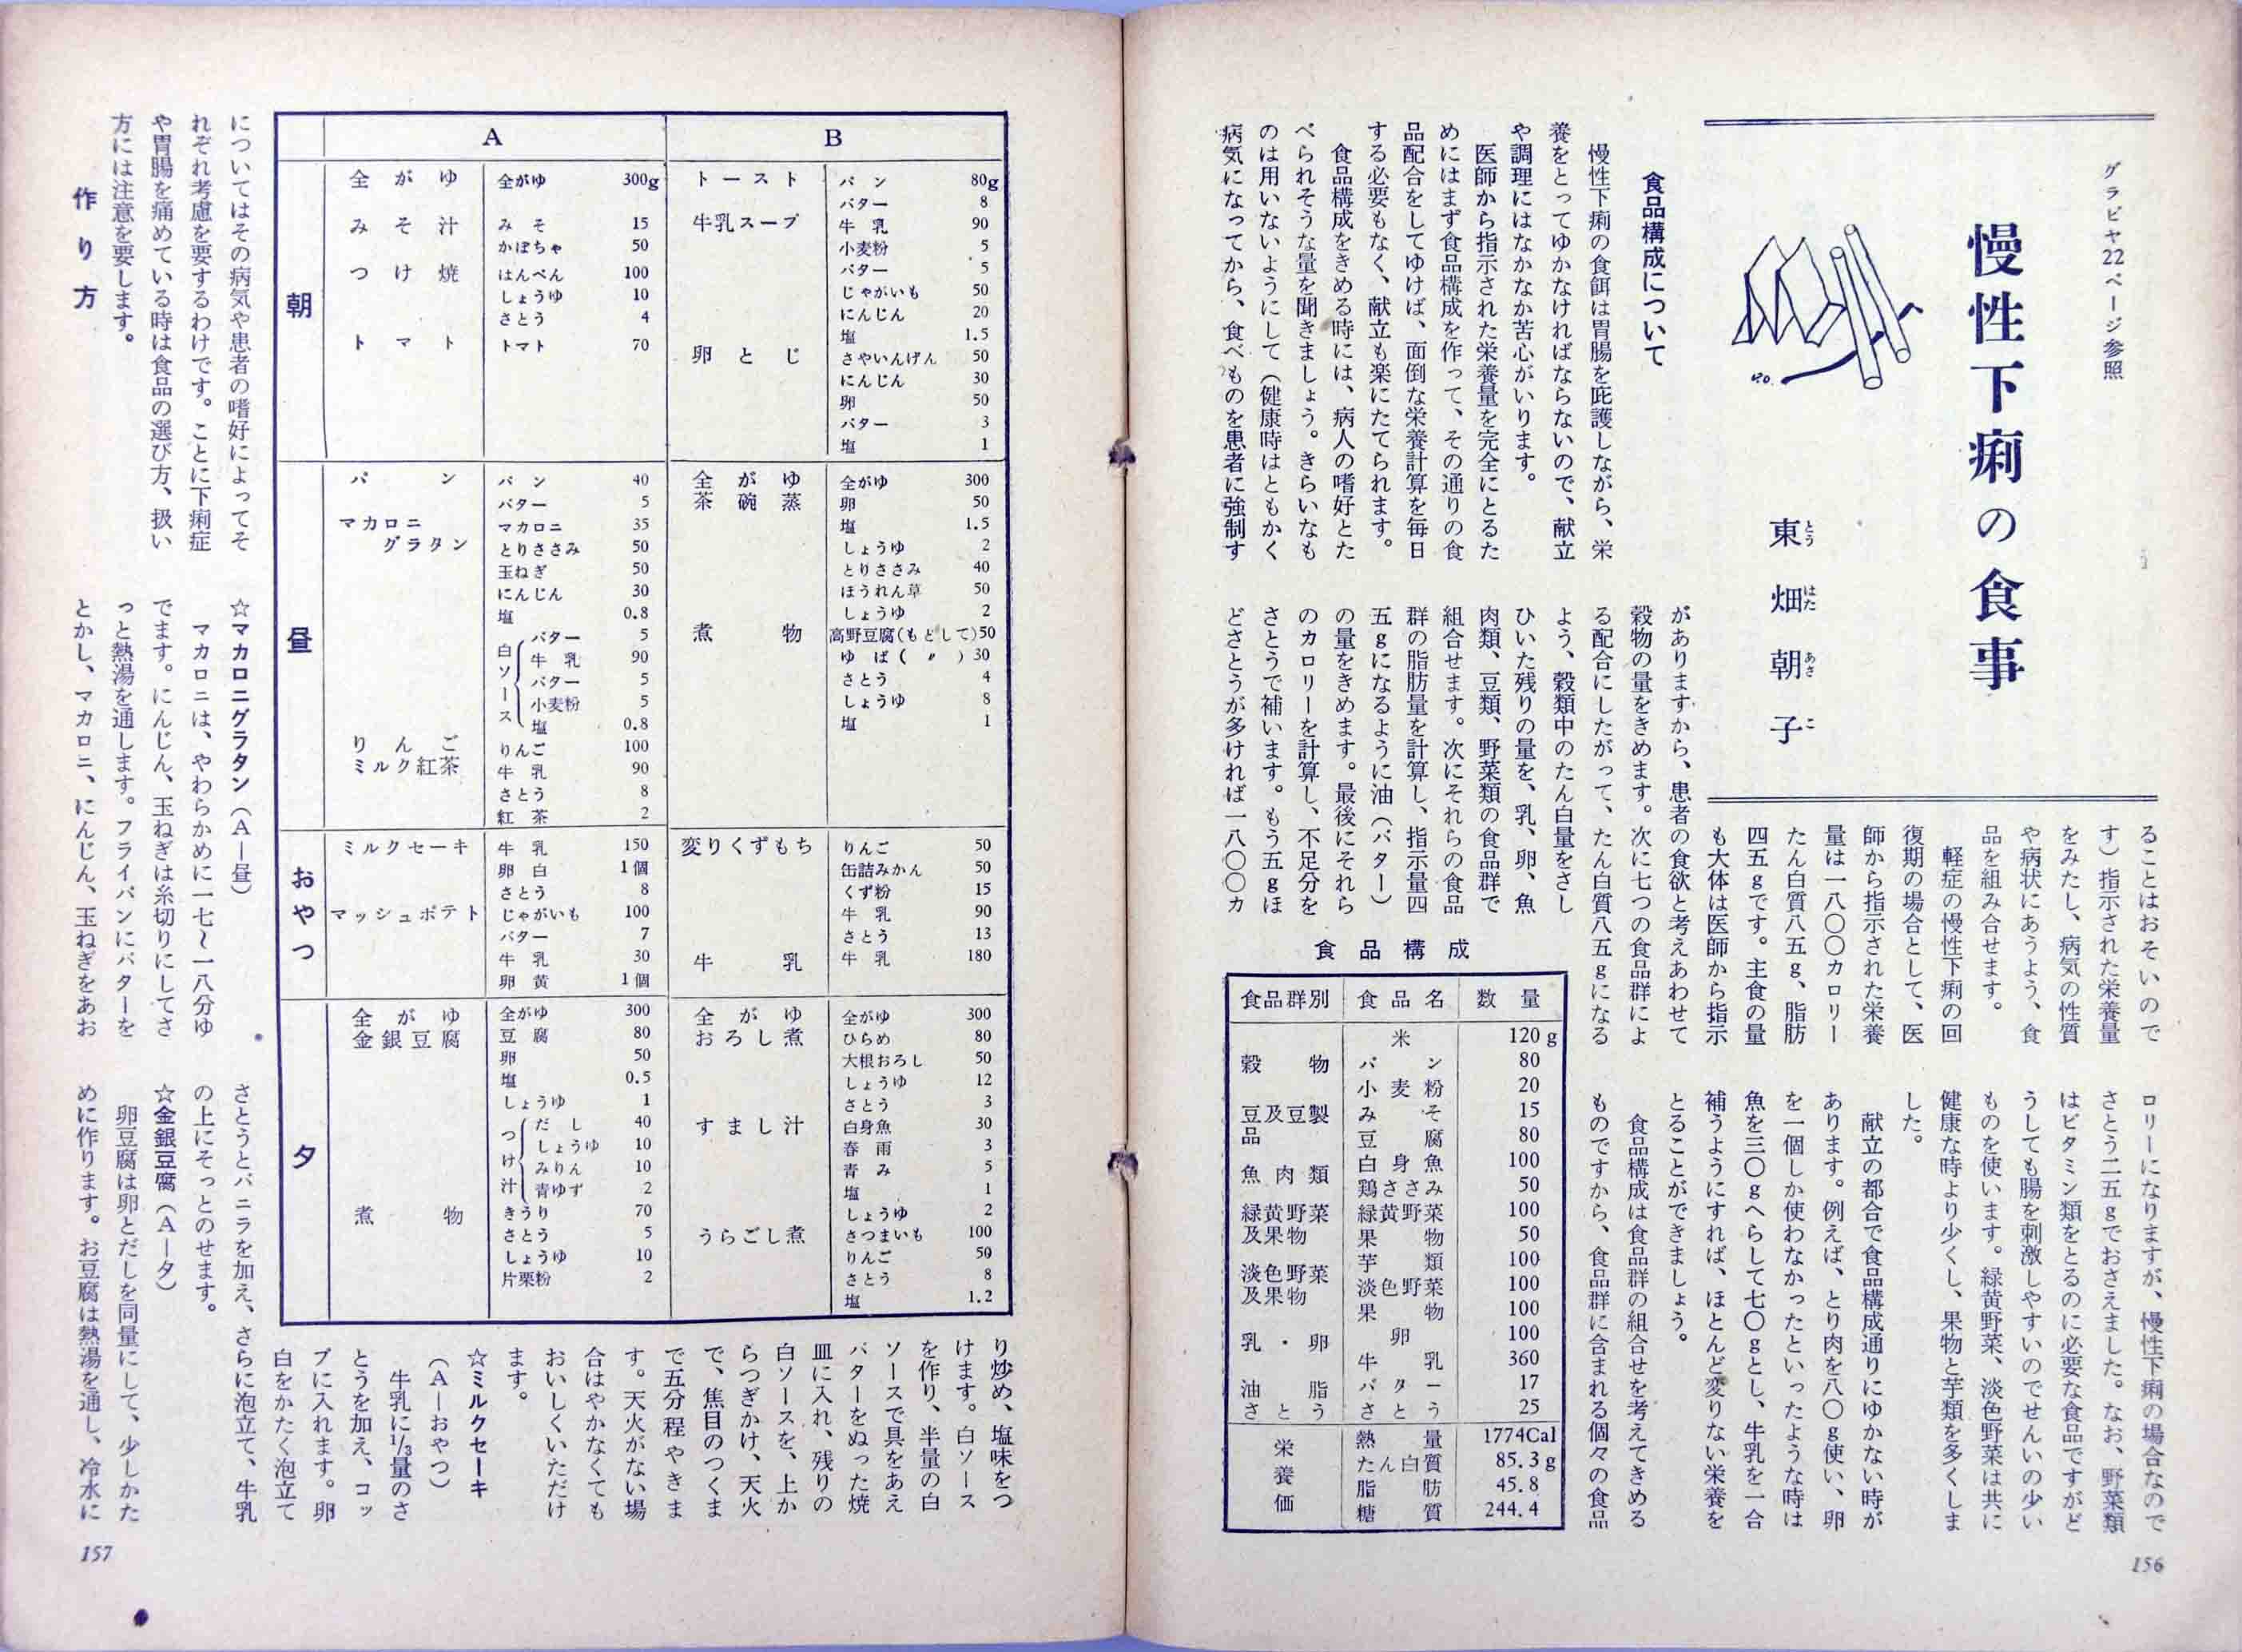 グラビヤ22ページ参照
慢性下痢の食事
東畑朝子
とうはたあさこ
食品構成について
慢性下痢の食餌は胃腸を庇護しながら、栄
養をとってゆかなければならないので、献立
や調理にはなかなか苦心がいります。
医師から指示された栄養量を完全にとるた
めにはまず食品構成を作って、その通りの食
品配合をしてゆけば、面倒な栄養計算を毎日
する必要もなく、献立も楽にたてられます。
食品構成をきめる時には、病人の嗜好とた
べられそうな量を聞きましょう。きらいなも
のは用いないようにして（健康時はともかく
病気になってから、食べものを患者に強制す
ることはおそいので
す）指示された栄養量
をみたし、病気の性質
や病状にあうよう、食
品を組み合せます。
軽症の慢性下痢の回
復期の場合として、医
師から指示された栄養
量は一八〇〇カロリー
たん白質八五g、脂肪
四五gです。主食の量
も大体は医師から指示
がありますから、患者の食欲と考えあわせて
穀物の量をきめます。次に七つの食品群によ
る配合にしたがって、たん白質八五gになる
よう、穀類中のたん白量をさし
ひいた残りの量を、乳、卵、魚
肉類、豆類、野菜類の食品群で
組合せます。次にそれらの食品
群の脂肪量を計算し、指示量四
五gになるように油（バター）
の量をきめます。最後にそれら
のカロリーを計算し、不足分を
さとうで補います。もう五gほ
どさとうが多ければ一八〇〇カ
ロリーになりますが、慢性下痢の場合なので
さとう二五gでおさえました。なお、野菜類
はビタミン類をとるのに必要な食品ですがど
うしても腸を刺激しやすいのでせんいの少い
ものを使います。緑黄野菜、淡色野菜は共に
健康な時より少くし、果物と芋類を多くしま
した。
献立の都合で食品構成通りにゆかない時が
あります。例えば、とり肉を八〇g使い、卵
を一個しか使わなかったといったような時は
魚を三〇gへらして七〇gとし、牛乳を一合
補うようにすれば、ほとんど変りない栄養を
とることができましょう。
食品構成は食品群の組合せを考えてきめる
ものですから、食品群に含まれる個々の食品
食品構成
食品群別 食品名 数量
穀物 米 120g
パン 80
小麦粉 20
豆及豆製品 みそ 15
豆腐 80
魚肉類 白身魚 100
鶏ささみ 50
緑黄野菜及果物 緑黄野菜 100
果物 50
淡色野菜及果物 芋類 100
淡色野菜 100
果物 100
乳・卵 卵 100
牛乳 360
油脂 バター 17
さとう さとう 25
栄養価 熱量 1774Cal
たん白質 85.3g
脂肪 45.8
糖質 244.4
156
A B
朝
全がゆ 全がゆ 300g
みそ汁 みそ 15
かぼちゃ 50
つけ焼 はんぺん 100
しょうゆ 10
さとう 4
トマト トマト 70
トースト パン 80g
バター 8
牛乳スープ 牛乳 90
小麦粉 5
バター 5
じゃがいも 50
にんじん 20
塩 1.5
卵とじ さやいんげん 50
にんじん 30
卵 50
バター 3
塩 1
昼
パン パン 40
バター 5
マカロニグラタン マカロニ 35
とりささみ 50
玉ねぎ 50
にんじん 30
塩 0.8
白ソース
バター 5
牛乳 90
バター 5
小麦粉 5
塩 0.8
りんご りんご 100
ミルク紅茶 牛乳 90
さとう 8
紅茶 2
全がゆ 全がゆ 300
茶碗蒸 卵 50
塩 1.5
しょうゆ 2
とりささみ 40
ほうれん草 50
しょうゆ 2
煮物 高野豆腐(もどして)50
ゆば(〃)30
さとう 4
しょうゆ 8
塩 1
おやつ
ミルクセーキ 牛乳 150
卵白 1個
さとう 8
マッシュポテト じゃがいも 100
バター 7
牛乳 30
卵黄 1個
変りくずもち りんご 50
缶詰みかん 50
くず粉 15
牛乳 90
さとう 13
牛乳 牛乳 180
夕
全がゆ 全がゆ 300
金銀豆腐 豆腐 80
卵 50
塩 0.5
しょうゆ 1
つけ汁
だし 40
しょうゆ 10
みりん 10
青ゆず 2
煮物 きうり 70
さとう 5
しょうゆ 10
片栗粉 2
全がゆ 全がゆ 300
おろし煮 ひらめ 80
大根おろし 50
しょうゆ 12
さとう 3
すまし汁 白身魚 30
春雨 3
青み 5
塩 1
しょうゆ 2
うらごし煮 さつまいも 100
りんご 50
さとう 8
塩 1.2
についてはその病気や患者の嗜好によってそ
れぞれ考慮を要するわけです。ことに下痢症
や胃腸を痛めている時は食品の選び方、扱い
方には注意を要します。
作り方
☆マカロニグラタン（A―昼）
マカロニは、やわらかめに一七〜一八分ゆ
でます。にんじん、玉ねぎは糸切りにしてさ
っと熱湯を通します。フライパンにバターを
とかし、マカロニ、にんじん、玉ねぎをあお
り炒め、塩味をつ
けます。白ソース
を作り、半量の白
ソースで具をあえ
バターをぬった焼
皿に入れ、残りの
白ソースを、上か
らつぎかけ、天火
で、焦目のつくま
で五分程やきま
す。天火がない場
合はやかなくても
おいしくいただけ
ます。
☆ミルクセーキ
（A―おやつ）
牛乳に1/3量のさ
とうを加え、コッ
プに入れます。卵
白をかたく泡立て
さとうとバニラを加え、さらに泡立て、牛乳
の上にそっとのせます。
☆金銀豆腐（A―夕）
卵豆腐は卵とだしを同量にして、少しかた
めに作ります。お豆腐は熱湯を通し、冷水に
157